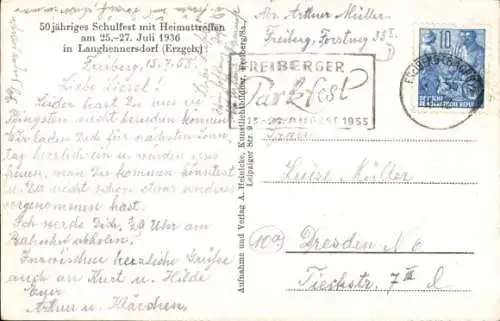 50jähriges Schulfest mit Heimattreffen
am 25.-27. Juli 1936
in Langhennersdorf (Erzgeb.)
Freiberg, 13.7.55.
Liebe Liesel!
Leider hast Du uns
Pfingsten nicht besuchen können.
Wir laden Dich für nächsten Sonn-
tag herzlich ein u. würden uns
freuen, wenn Du kommen könntest
u. Dir nicht schon etwas anderes
vorgenommen hast.
Ich werde Dich, Uhr am
Bahnhof abholen.
Inzwischen herzliche Grüße
auch an Kurt u. Hilde
Euer
Arthur u. Klärchen
Aufnahme und Verlag A. Heinicke, Kunstlichtbildner, Freiberg/Sa.
Leipziger Str. 9
Abs. Arthur Müller
Freiberg, Forstweg
FREIBERGER
Parkfest
AUGUST 1955
10
DEUTSCHE DEMOKRATISCHE REPUBLIK
Frau
Luise Müller
(10a)
Dresden N 6
Tieckstr. 7 III